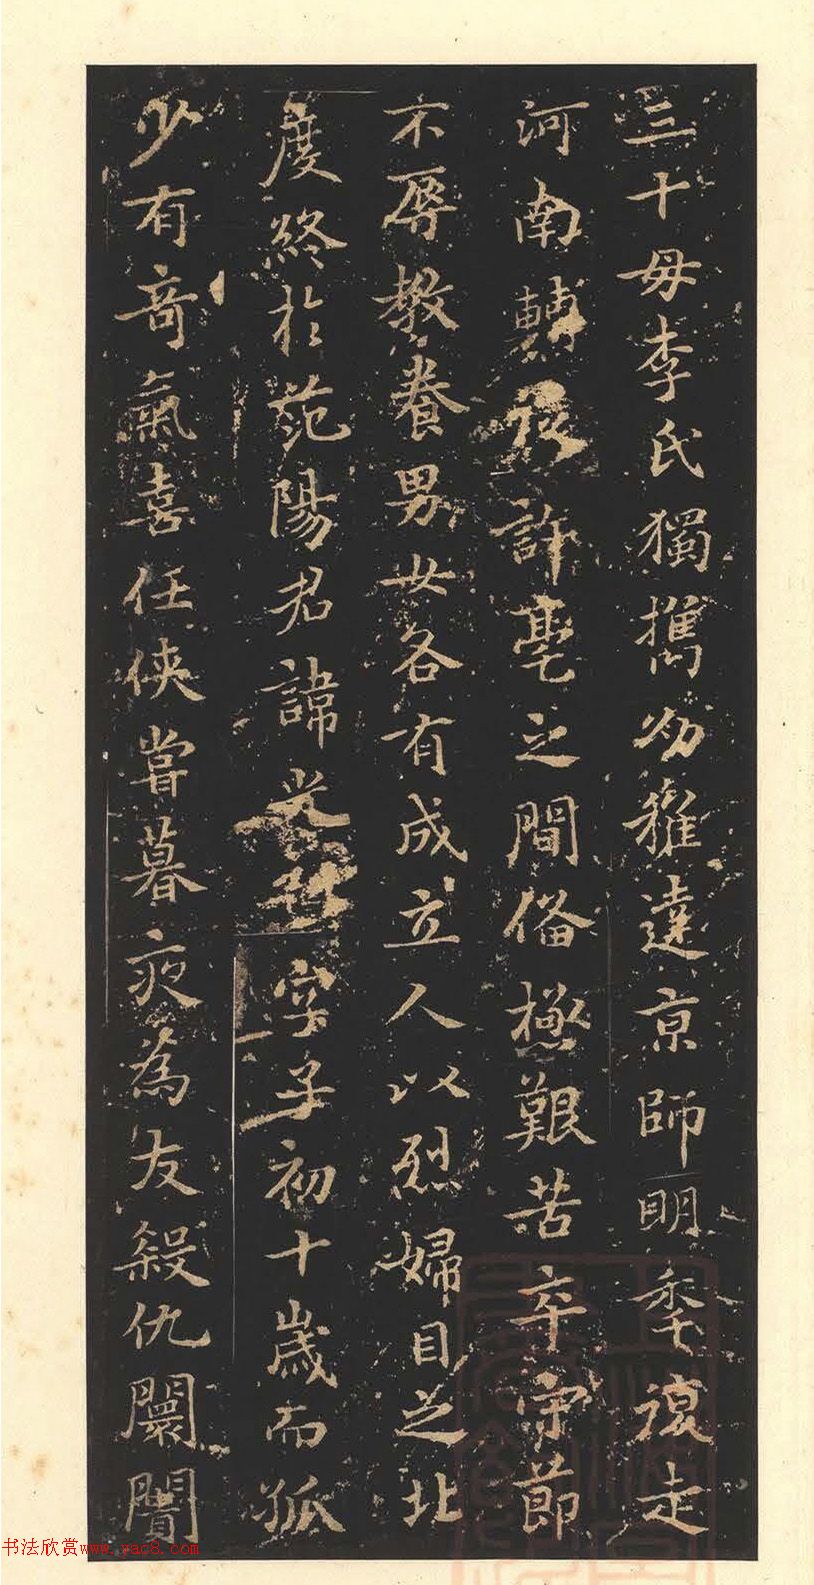 三十母李氏獨攜幼稚達京師明秊復走
河南轉許亳之間俻極艱苦卒守節
不辱教養男女各有成立人以烈婦目之北
度終於范陽君諱字子初十歲而孤
少有奇氣喜任俠嘗暮夜為友殺仇闤闠
书法欣赏www.yac8.com